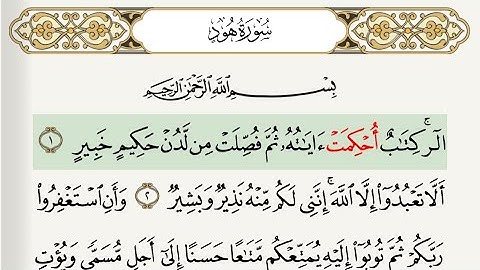 سُورَةُ هُودٍ
بِسْمِ اللَّهِ الرَّحْمَٰنِ الرَّحِيمِ
الٓر ۚ كِتَٰبٌ أُحْكِمَتْ ءَايَٰتُهُۥ ثُمَّ فُصِّلَتْ مِن لَّدُنْ حَكِيمٍ خَبِيرٍ ١
أَلَّا تَعْبُدُوٓا۟ إِلَّا ٱللَّهَ ۚ إِنَّنِى لَكُم مِّنْهُ نَذِيرٌ وَبَشِيرٌ ٢ وَأَنِ ٱسْتَغْفِرُوا۟
رَبَّكُمْ ثُمَّ تُوبُوٓا۟ إِلَيْهِ يُمَتِّعْكُم مَّتَٰعًا حَسَنًا إِلَىٰٓ أَجَلٍ مُّسَمًّى وَيُؤْتِ